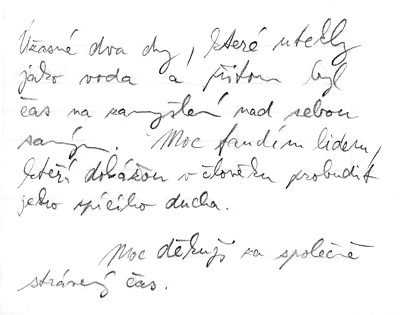 Úžasné dva dny, které utekly
jako voda a přitom byl
čas na zamyšlení nad sebou
samým. Moc fandím lidem,
kteří dokážou v člověku probudit
jeho spícího ducha.
Moc děkuji za společně
strávený čas.